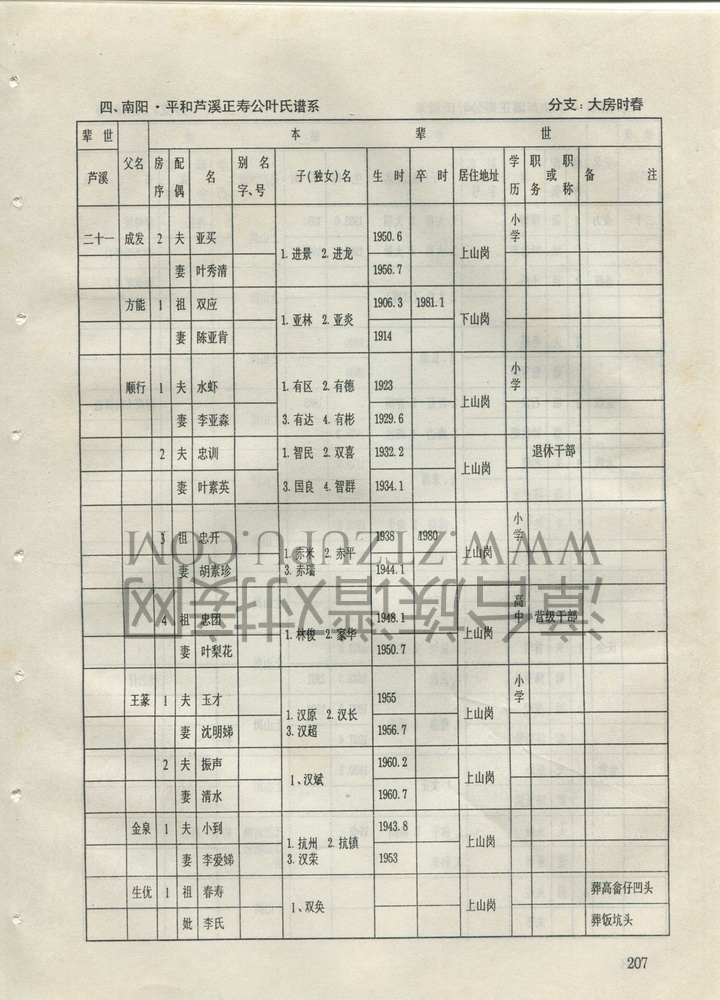 四、南阳·平和芦溪正寿公叶氏谱系 分支：大房时春
辈世 本辈世
芦溪 父名 房序 配偶 名 别名字、号 子(独女)名 生时 卒时 居住地址 学历 职务或职称 备注
二十一 成发 2 夫 亚买 1.进景 2.进龙 1950.6 上山岗 小学
妻 叶秀清 1956.7
方能 1 祖 双应 1.亚林 2.亚炎 1906.3 1981.1 下山岗
妻 陈亚肯 1914
顺行 1 夫 水虾 1.有区 2.有德 1923 上山岗 小学
妻 李亚淼 3.有达 4.有彬 1929.6
2 夫 忠训 1.智民 2.双喜 1932.2 上山岗 退休干部
妻 叶素英 3.国良 4.智群 1934.1
3 祖 忠开 1.赤米 2.赤平 1938 1980 上山岗 小学
妻 胡素珍 3.赤瑞 1944.1
4 祖 忠团 1.林俊 2.家华 1948.1 上山岗 高中 营级干部
妻 叶梨花 1950.7
王篆 1 夫 玉才 1.汉原 2.汉长 1955 上山岗 小学
妻 沈明娣 3.汉超 1956.7
2 夫 振声 1、汉斌 1960.2 上山岗
妻 清水 1960.7
金泉 1 夫 小到 1.抗州 2.抗镇 1943.8 上山岗
妻 李爱娣 3.汉荣 1953
生优 1 祖 春寿 1、双奂 上山岗 葬高畲仔凹头
妣 李氏 葬饭坑头
207
WWW.ZTZUPU.COM
漳台族谱对接网